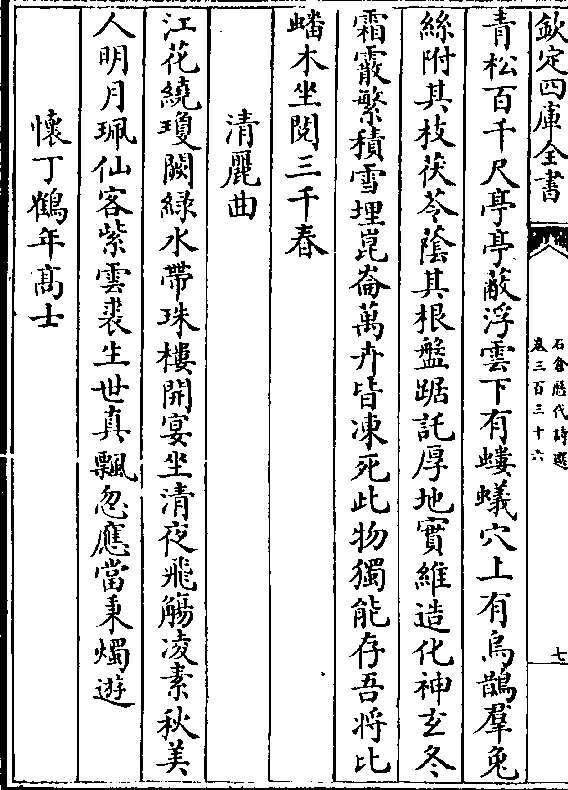 欽定四庫全書
石倉歷代詩選
卷三百三十六
七
青松百千尺亭亭蔽浮雲下有螻蟻穴上有烏鵲羣兔
絲附其枝茯苓蔭其根盤踞託厚地實維造化神玄冬
霜霰繁積雪埋崑崙萬卉皆凍死此物獨能存吾將比
蟠木坐閱三千春
清麗曲
江花繞瓊闕綠水帶珠樓開宴坐清夜飛觴凌素秋美
人明月珮仙客紫雲裘生世真飄忽應當秉燭遊
懷丁鶴年高士